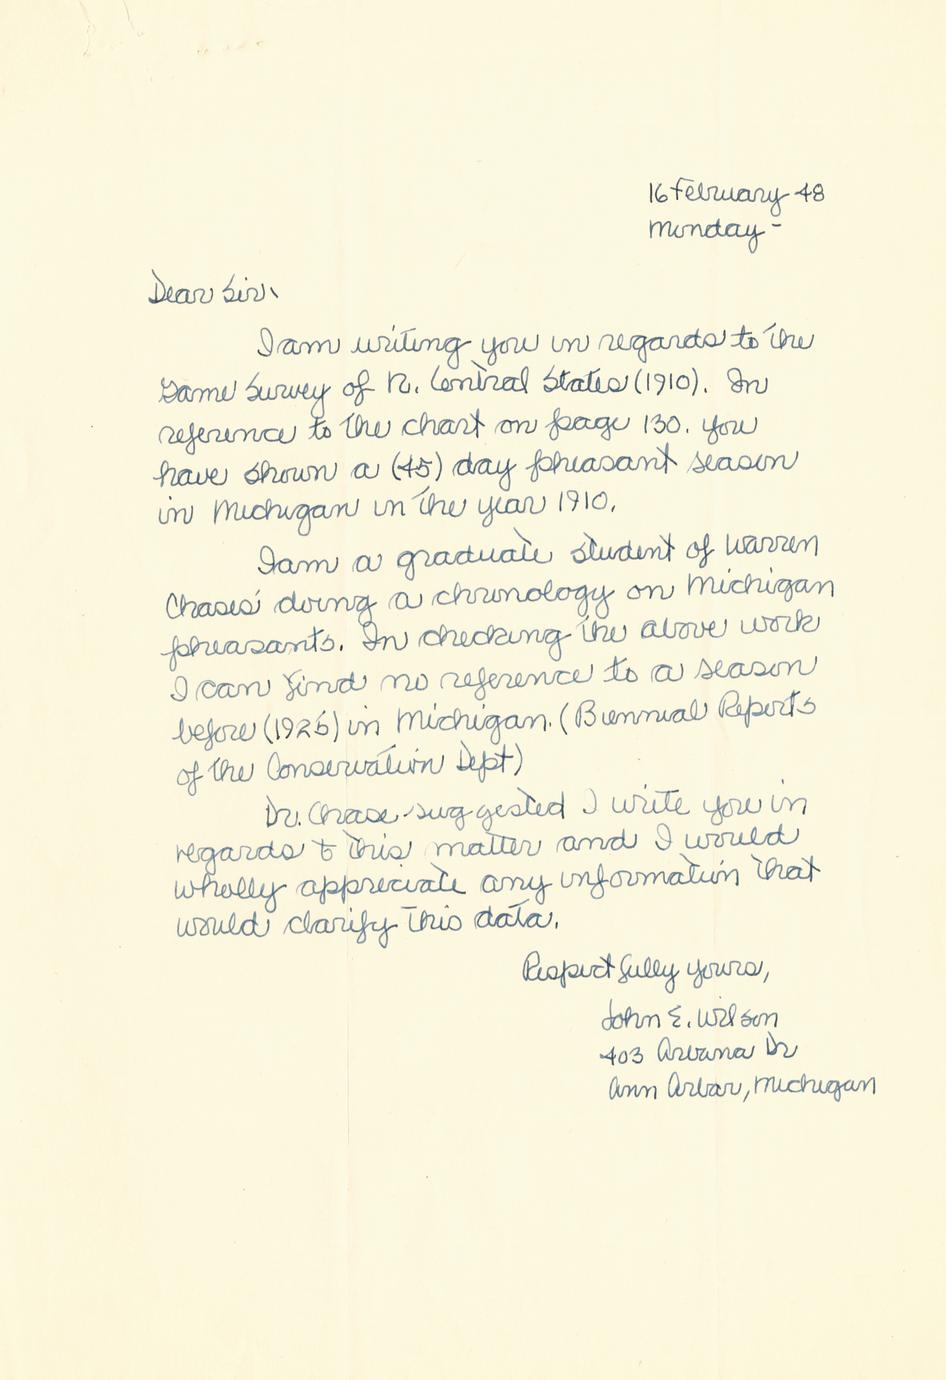 16 February 48
Monday -
Dear Sir,
I am writing you in regards to the
Game Survey of N. Central States (1910). In
reference to the chart on page 130. you
have shown a (45) day pheasant season
in Michigan in the year 1910.
I am a graduate student of Warren
Chases' doing a chronology on Michigan
pheasants. In checking the above work
I can find no reference to a season
before (1925) in Michigan. (Biennial Reports
of the Conservation Dept)
Dr. Chase suggested I write you in
regards to this matter and I would
wholly appreciate any information that
would clarify this data.
Respectfully yours,
John E. Wilson
403 Arbana Dr
Ann Arbor, Michigan